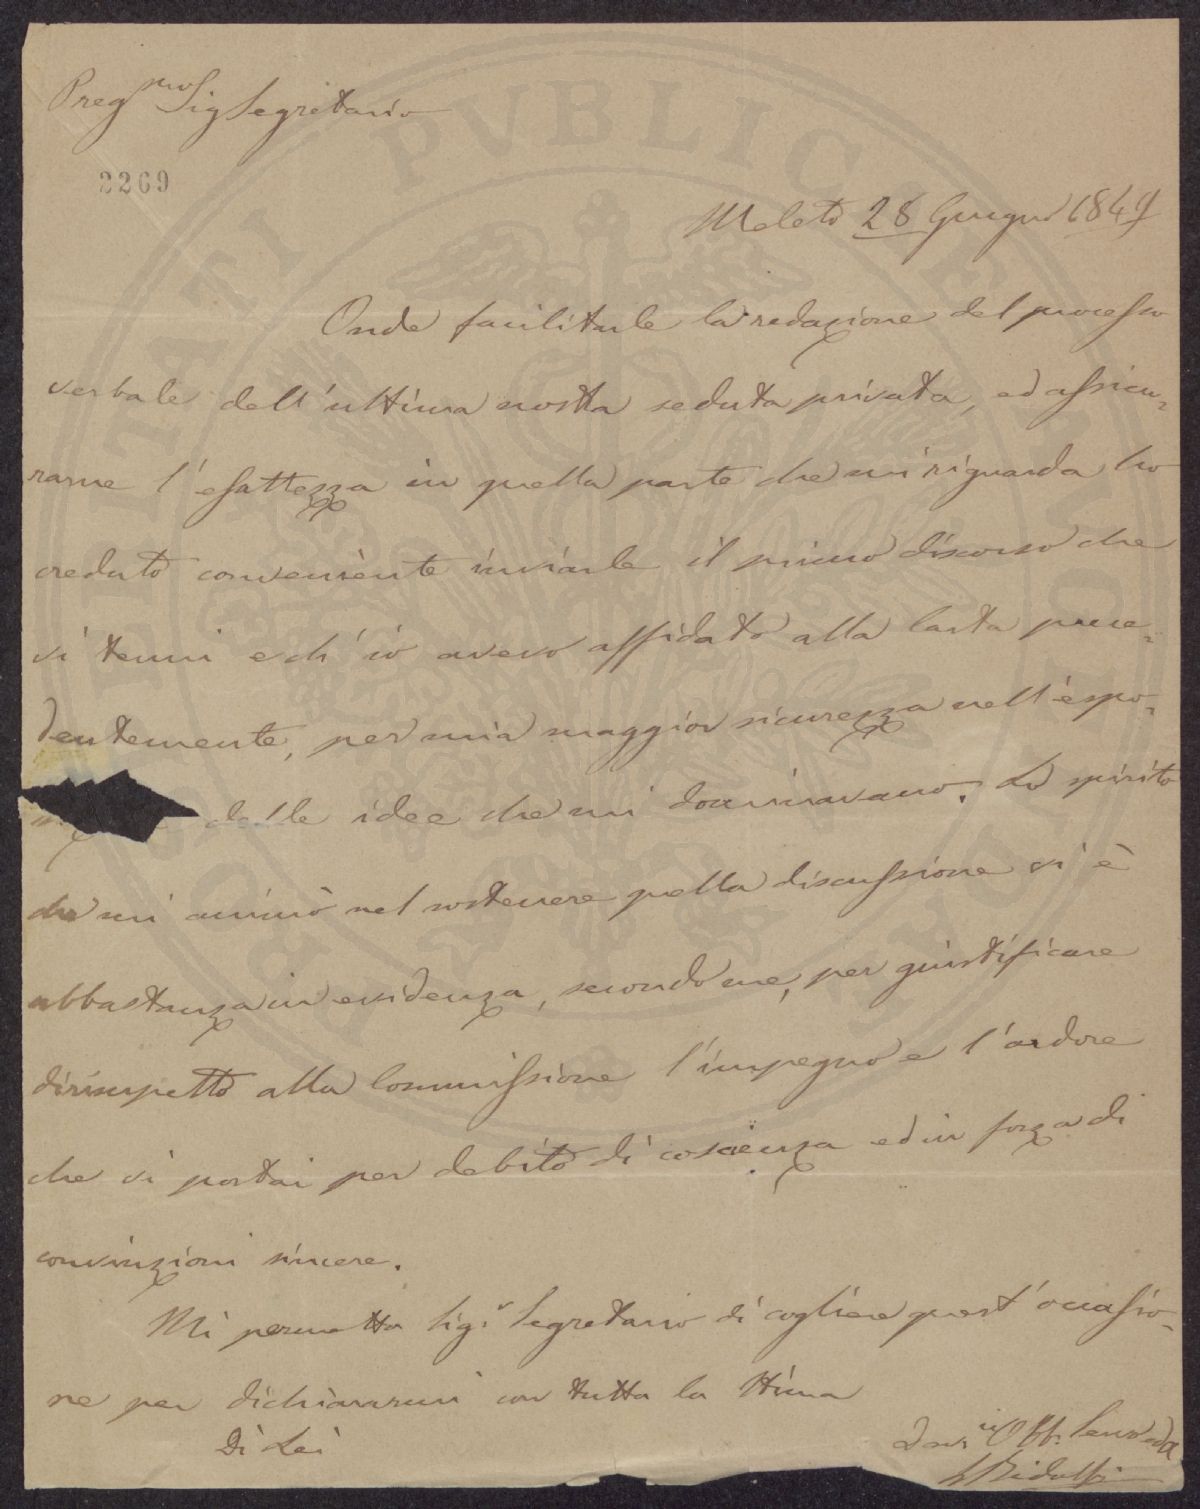 Preg.mo Sig Segretario
2269
Meleto 28 Giugno 1849
Onde facilitarle la redazione del processo
verbale dell'ultima nostra seduta privata, ed assicu-
rarne l'esattezza in quella parte che mi riguarda ho
creduto conveniente inviarle il primo discorso che
vi tenni e ch'io avevo affidato alla carta prece-
dentemente, per mia maggior sicurezza nell'espo-
delle idee che mi dominavano. Lo spirito
che mi animò nel sostenere quella discussione vi è
abbastanza in evidenza, secondo me, per giustificare
dirimpetto alla Commissione l'impegno e l'ardore
che vi portai per debito di coscienza ed in forza di
convinzioni sincere.
Mi permetta Sig.r Segretario di cogliere quest'occasio-
ne per dichiararmi con tutta la stima
Di Lei
Dev. Off.
C Ridolfi
PVBLICAE